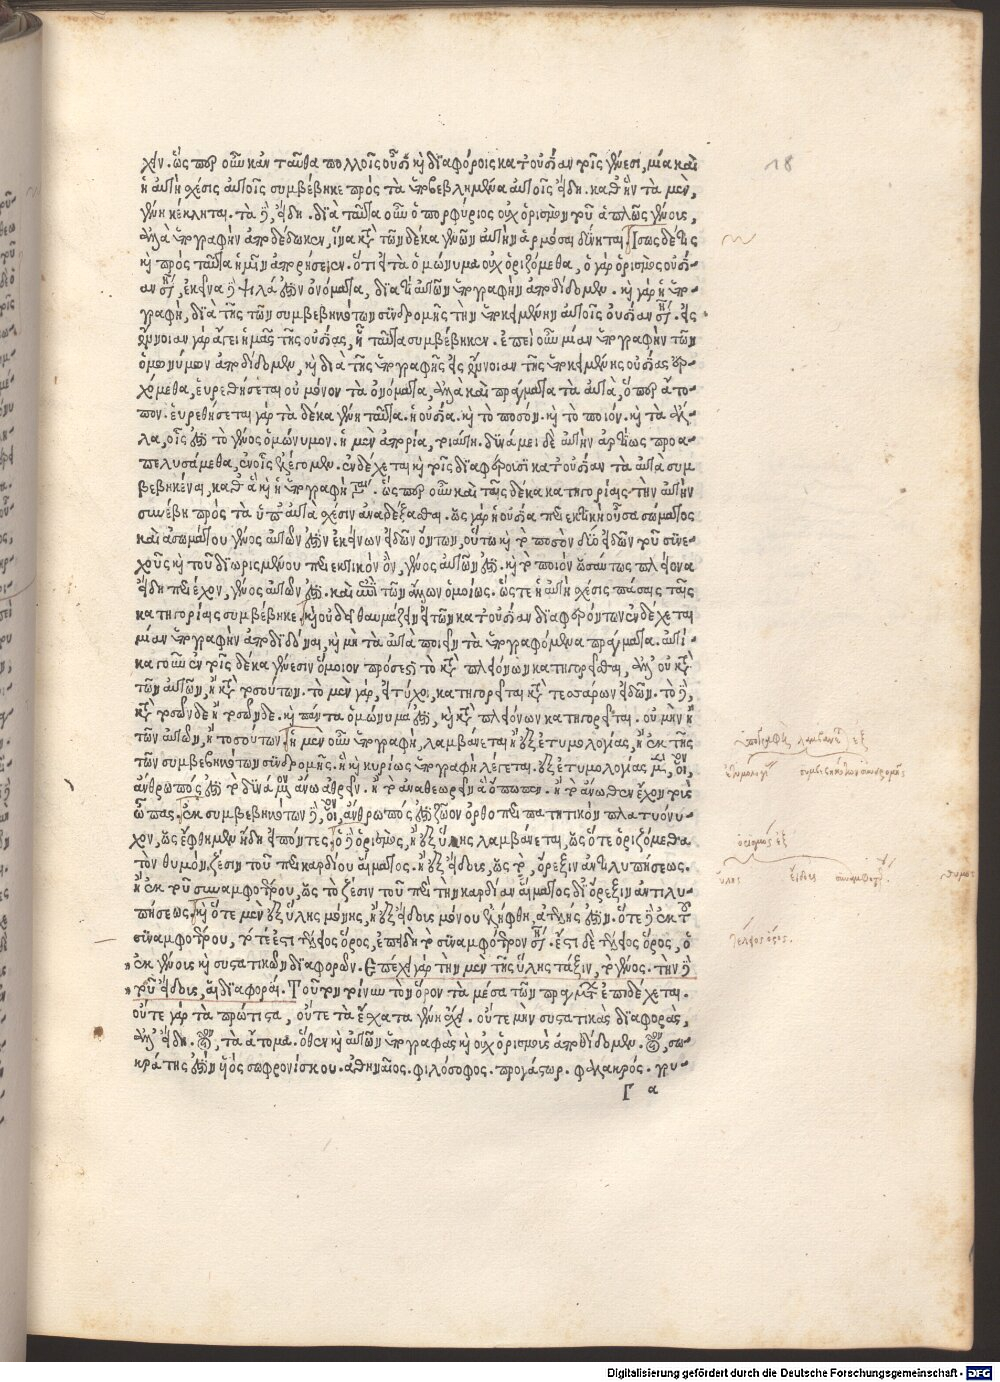 χειν. ὥσπερ οὖν κἀνταῦθα πολλοῖς οὖσι καὶ διαφόροις κατ' οὐσίαν τοῖς γένεσι, μία καὶ
ἡ αὐτὴ σχέσις αὐτοῖς συμβέβηκε πρὸς τὰ ὑποβεβλημένα αὐτοῖς εἴδη. καθ' ἣν τὰ μὲν,
γένη κέκληται. τὰ δὲ, εἴδη. διὰ ταῦτα οὖν ὁ πορφύριος οὐχ ὁρισμὸν τοῦ ἁπλῶς γένους,
ἀλλὰ ὑπογραφὴν ἀποδέδωκεν, ἵνα κατὰ τῶν δέκα γενῶν αὐτὴν ἁρμόσαι δύνηται. Ἴσως δέ τις
18
καὶ πρὸς ταῦτα ἡμῖν ἀπορήσειεν. ὅτι εἰ τὰ ὁμώνυμα οὐχ ὁριζόμεθα, ὁ γὰρ ὁρισμὸς οὐσί-
αν , ἐκεῖνα δὲ ψιλά ἐστιν ὀνόματα, διατί αὐτῶν ὑπογραφὴν ἀποδίδομεν. καὶ γὰρ ἡ ὑπο-
γραφὴ, διὰ τῆς τῶν συμβεβηκότων συνδρομῆς τὴν ὑποκειμένην αὐτοῖς οὐσίαν . εἰς
ἔννοιαν γὰρ ἄγει ἡμᾶς τῆς οὐσίας, ᾗ ταῦτα συμβέβηκεν. ἐπεὶ οὖν μίαν ὑπογραφὴν τῶν
ὁμωνύμων ἀποδίδομεν, καὶ διὰ τῆς ὑπογραφῆς εἰς ἔννοιαν τῆς ὑποκειμένης οὐσίας ἐρ-
χόμεθα, εὑρεθήσεται οὐ μόνον τὰ ὀνόματα, ἀλλὰ καὶ πράγματα τὰ αὐτὰ, ὅπερ ἄτο-
πον. εὑρεθήσεται γὰρ τὰ δέκα γένη ταῦτα. ἡ οὐσία. καὶ τὸ ποσόν. καὶ τὸ ποιόν. καὶ τὰ ἄλ-
λα, οἷς ἐστι τὸ γένος ὁμώνυμον. ἡ μὲν ἀπορία, τοιαύτη. δυνάμει δὲ αὐτὴν ἀρτίως προα-
πελυσάμεθα, ἐν οἷς ἐλέγομεν. ἐνδέχεται καὶ τοῖς διαφόροισι κατ' οὐσίαν τὰ αὐτὰ συμ-
βεβηκέναι, καθ' ἃ καὶ ἡ ὑπογραφὴ . ὥσπερ οὖν καὶ ταῖς δέκα κατηγορίαις τὴν αὐτὴν
συνέβη πρὸς τὰ ὑπ' αὐτὰ σχέσιν ἀναδέξασθαι. ὡς γὰρ ἡ οὐσία περιεκτικὴ οὖσα σώματος
καὶ ἀσωμάτου γένος αὐτῶν ἐστιν ἐκείνων εἰδῶν ὄντων, οὕτω καὶ τὸ ποσὸν δύο εἰδῶν τοῦ συνε-
χοῦς καὶ τοῦ διωρισμένου περιεκτικὸν ὂν, γένος αὐτῶν ἐστι. καὶ τὸ ποιὸν ὡσαύτως πλείονα
εἴδη περιέχον, γένος αὐτῶν ἐστι. καὶ ἐπὶ τῶν ἄλλων ὁμοίως. ὥστε ἡ αὐτὴ σχέσις πάσαις ταῖς
κατηγορίαις συμβέβηκε. καὶ οὐ δεῖ θαυμάζειν εἰ τῶν κατ' οὐσίαν διαφερόντων ἐνδέχεται
μίαν ὑπογραφὴν ἀποδιδόναι, καὶ μὴ τὰ αὐτὰ ποιεῖν τὰ ὑπογραφόμενα πράγματα. αὐτί-
κα γοῦν ἐν τοῖς δέκα γένεσιν ὅμοιον πρόσεστι τὸ κατὰ πλειόνων κατηγορεῖσθαι, ἀλλ' οὐ κατὰ
τῶν αὐτῶν, ἢ κατὰ τοσούτων. τὸ μὲν γὰρ, εἰ τύχοι, κατηγορεῖται κατὰ τεσσάρων εἰδῶν. τὸ δὲ,
κατὰ τοσῶνδε ἢ τοσῶνδε. καὶ πάντα ὁμώνυμά ἐστι, καὶ κατὰ πλειόνων κατηγορεῖται. οὐ μὴν ἢ
τῶν αὐτῶν, ἢ τοσούτων. ἡ μὲν οὖν ὑπογραφὴ, λαμβάνεται ἢ ἐξ ἐτυμολογίας, ἢ ἐκ τῆς
ὑπογραφὴ λαμβάνεται ἐξ
τῶν συμβεβηκότων συνδρομῆς. ἣ καὶ κυρίως ὑπογραφὴ λέγεται. ἐξ ἐτυμολογίας μὲν, οἷον,
ἐτυμολογίας συμβεβηκότων συνδρομῆς
ἄνθρωπός ἐστι τὸ δυνάμενον ἄνω ἀθρεῖν. ἢ τὸ ἀναθεωρεῖν ἃ ὄπωπεν. ἢ τὸ ἄνωθεν ἔχον τοὺς
ὦπας. ἐκ συμβεβηκότων δὲ, οἷον, ἄνθρωπός ἐστι ζῶον ὀρθοπεριπατητικὸν πλατυόνυ-
χον, ὡς ἔφθημεν ἤδη εἰπόντες. ὁ δὲ ὁρισμὸς, ἢ ἐξ ὕλης λαμβάνεται, ὡς ὅτε ὁριζόμεθα
ὁρισμὸς ἐξ
τὸν θυμὸν, ζέσιν τοῦ περικαρδίου αἵματος. ἢ ἐξ εἴδους, ὡς τὸ, ὄρεξιν ἀντιλυπήσεως.
ὕλης εἴδους συναμφοτέρου θυμος
ἢ ἐκ τοῦ συναμφοτέρου, ὡς τὸ ζέσιν τοῦ περὶ τὴν καρδίαν αἵματος δι' ὄρεξιν ἀντιλυ-
πήσεως. καὶ ὅτε μὲν ἐξ ὕλης μόνης, ἢ ἐξ εἴδους μόνου ἐλήφθη, ἀτελής ἐστιν. ὅτε δὲ ἐκ τοῦ
συναμφοτέρου, τότε ἐστὶ τέλειος ὅρος, ἐπειδὴ τὸ συναμφότερον . ἔστι δὲ τέλειος ὅρος, ὁ
τέλειος ὅρος.
„ ἐκ γένους καὶ συστατικῶν διαφορῶν. Ἐπέχει γὰρ τὴν μὲν τῆς ὕλης τάξιν, τὸ γένος. τὴν δὲ
„ τοῦ εἴδους, αἱ διαφοραί. Τοῦτον τοίνυν τὸν ὅρον τὰ μέσα τῶν πραγμάτων ἐπιδέχεται.
οὔτε γὰρ τὰ πρώτιστα, οὔτε τὰ ἔσχατα γένη ἔχει. οὔτε μὴν συστατικὰς διαφορὰς,
ἀλλ' εἴδη. , τὰ ἄτομα. ὅθεν καὶ αὐτῶν ὑπογραφὰς καὶ οὐχ ὁρισμοὺς ἀποδίδομεν. , σω-
κράτης ἐστὶν υἱὸς σωφρονίσκου. ἀθηναῖος. φιλόσοφος. προγάστωρ. φαλακρός. γρυ-
Γ α
Digitalisierung gefördert durch die Deutsche Forschungsgemeinschaft - DFG